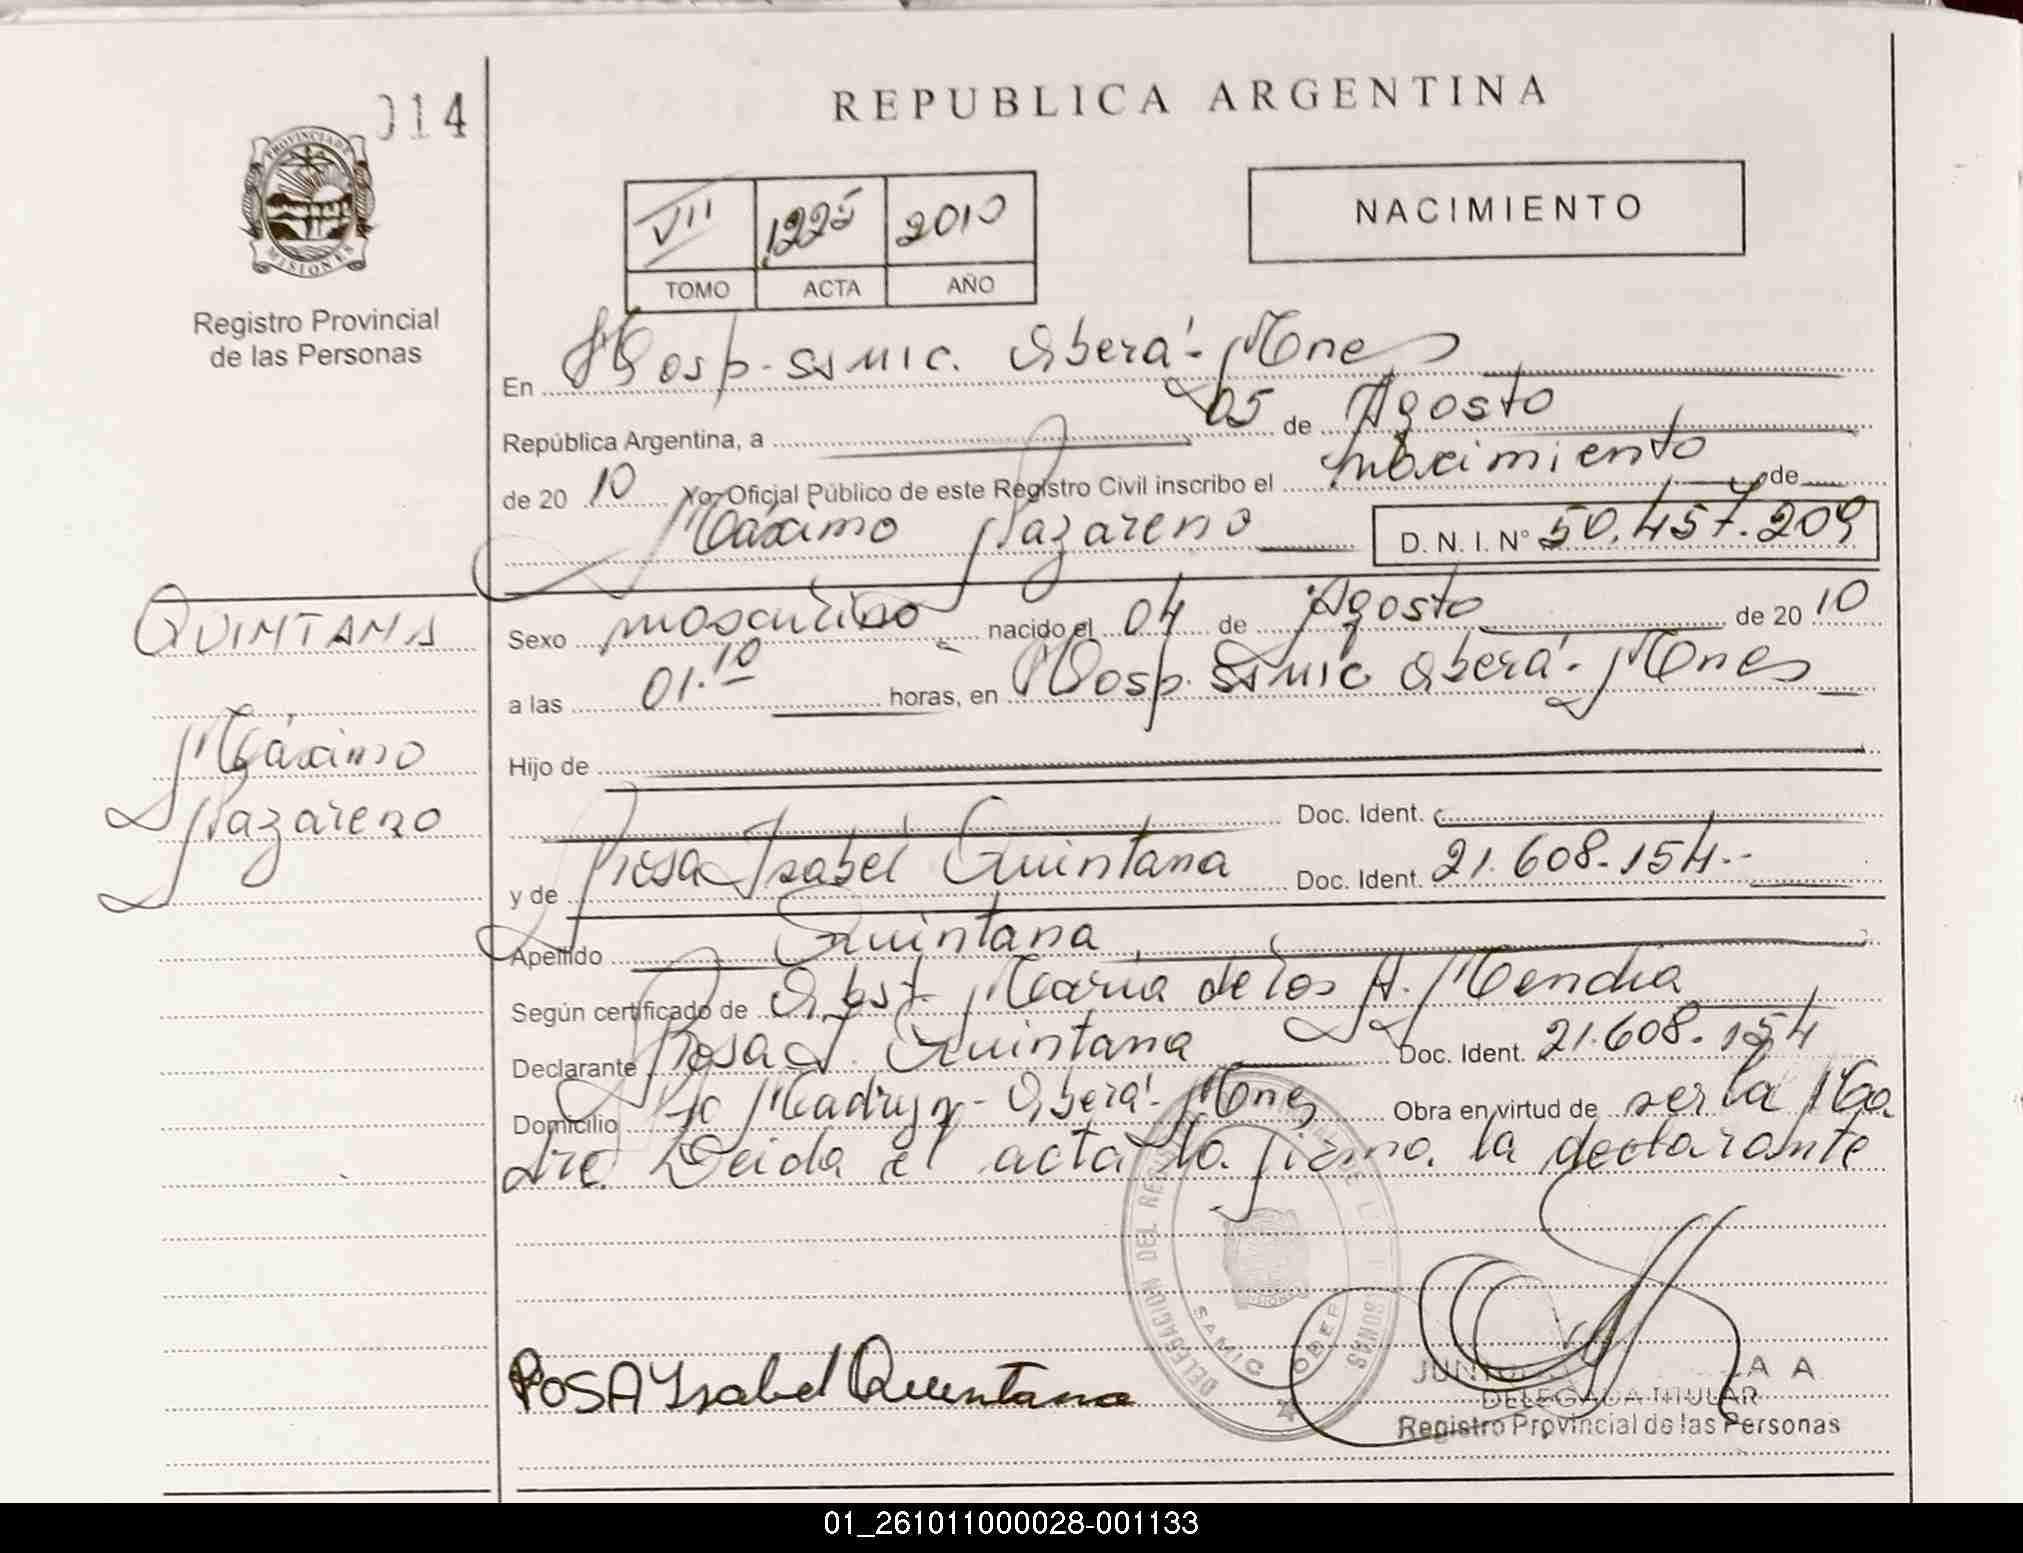 014
REPUBLICA ARGENTINA
PROVINCIA DE
MISIONES
Registro Provincial
de las Personas
VII 1225 2010
TOMO ACTA AÑO
NACIMIENTO
En Hosp. SAMIC. Oberá - Mnes
República Argentina, a 05 de Agosto
de 20 10 Yo, Oficial Público de este Registro Civil inscribo el nacimiento de
Máximo Nazareno D.N.I. Nº 50.457.209
QUINTANA
Máximo
Nazareno
Sexo masculino nacido el 04 de Agosto de 20 10
a las 01.10 horas, en Hosp. SAMIC Oberá - Mnes
Hijo de
Doc. Ident.
y de Rosa Isabel Quintana Doc. Ident. 21.608.154.-
Apellido Quintana
Según certificado de Obst. María de los A. Mendia
Declarante Rosa I. Quintana Doc. Ident. 21.608.154
Domicilio Madryn - Oberá - Mnes Obra en virtud de ser la Ma
dre. Leida el acta la firma la declarante
DELEGACION DEL
SAMIC OBER
ROSA Isabel Quintana
DELEGADA TITULAR
Registro Provincial de las Personas
01_261011000028-001133